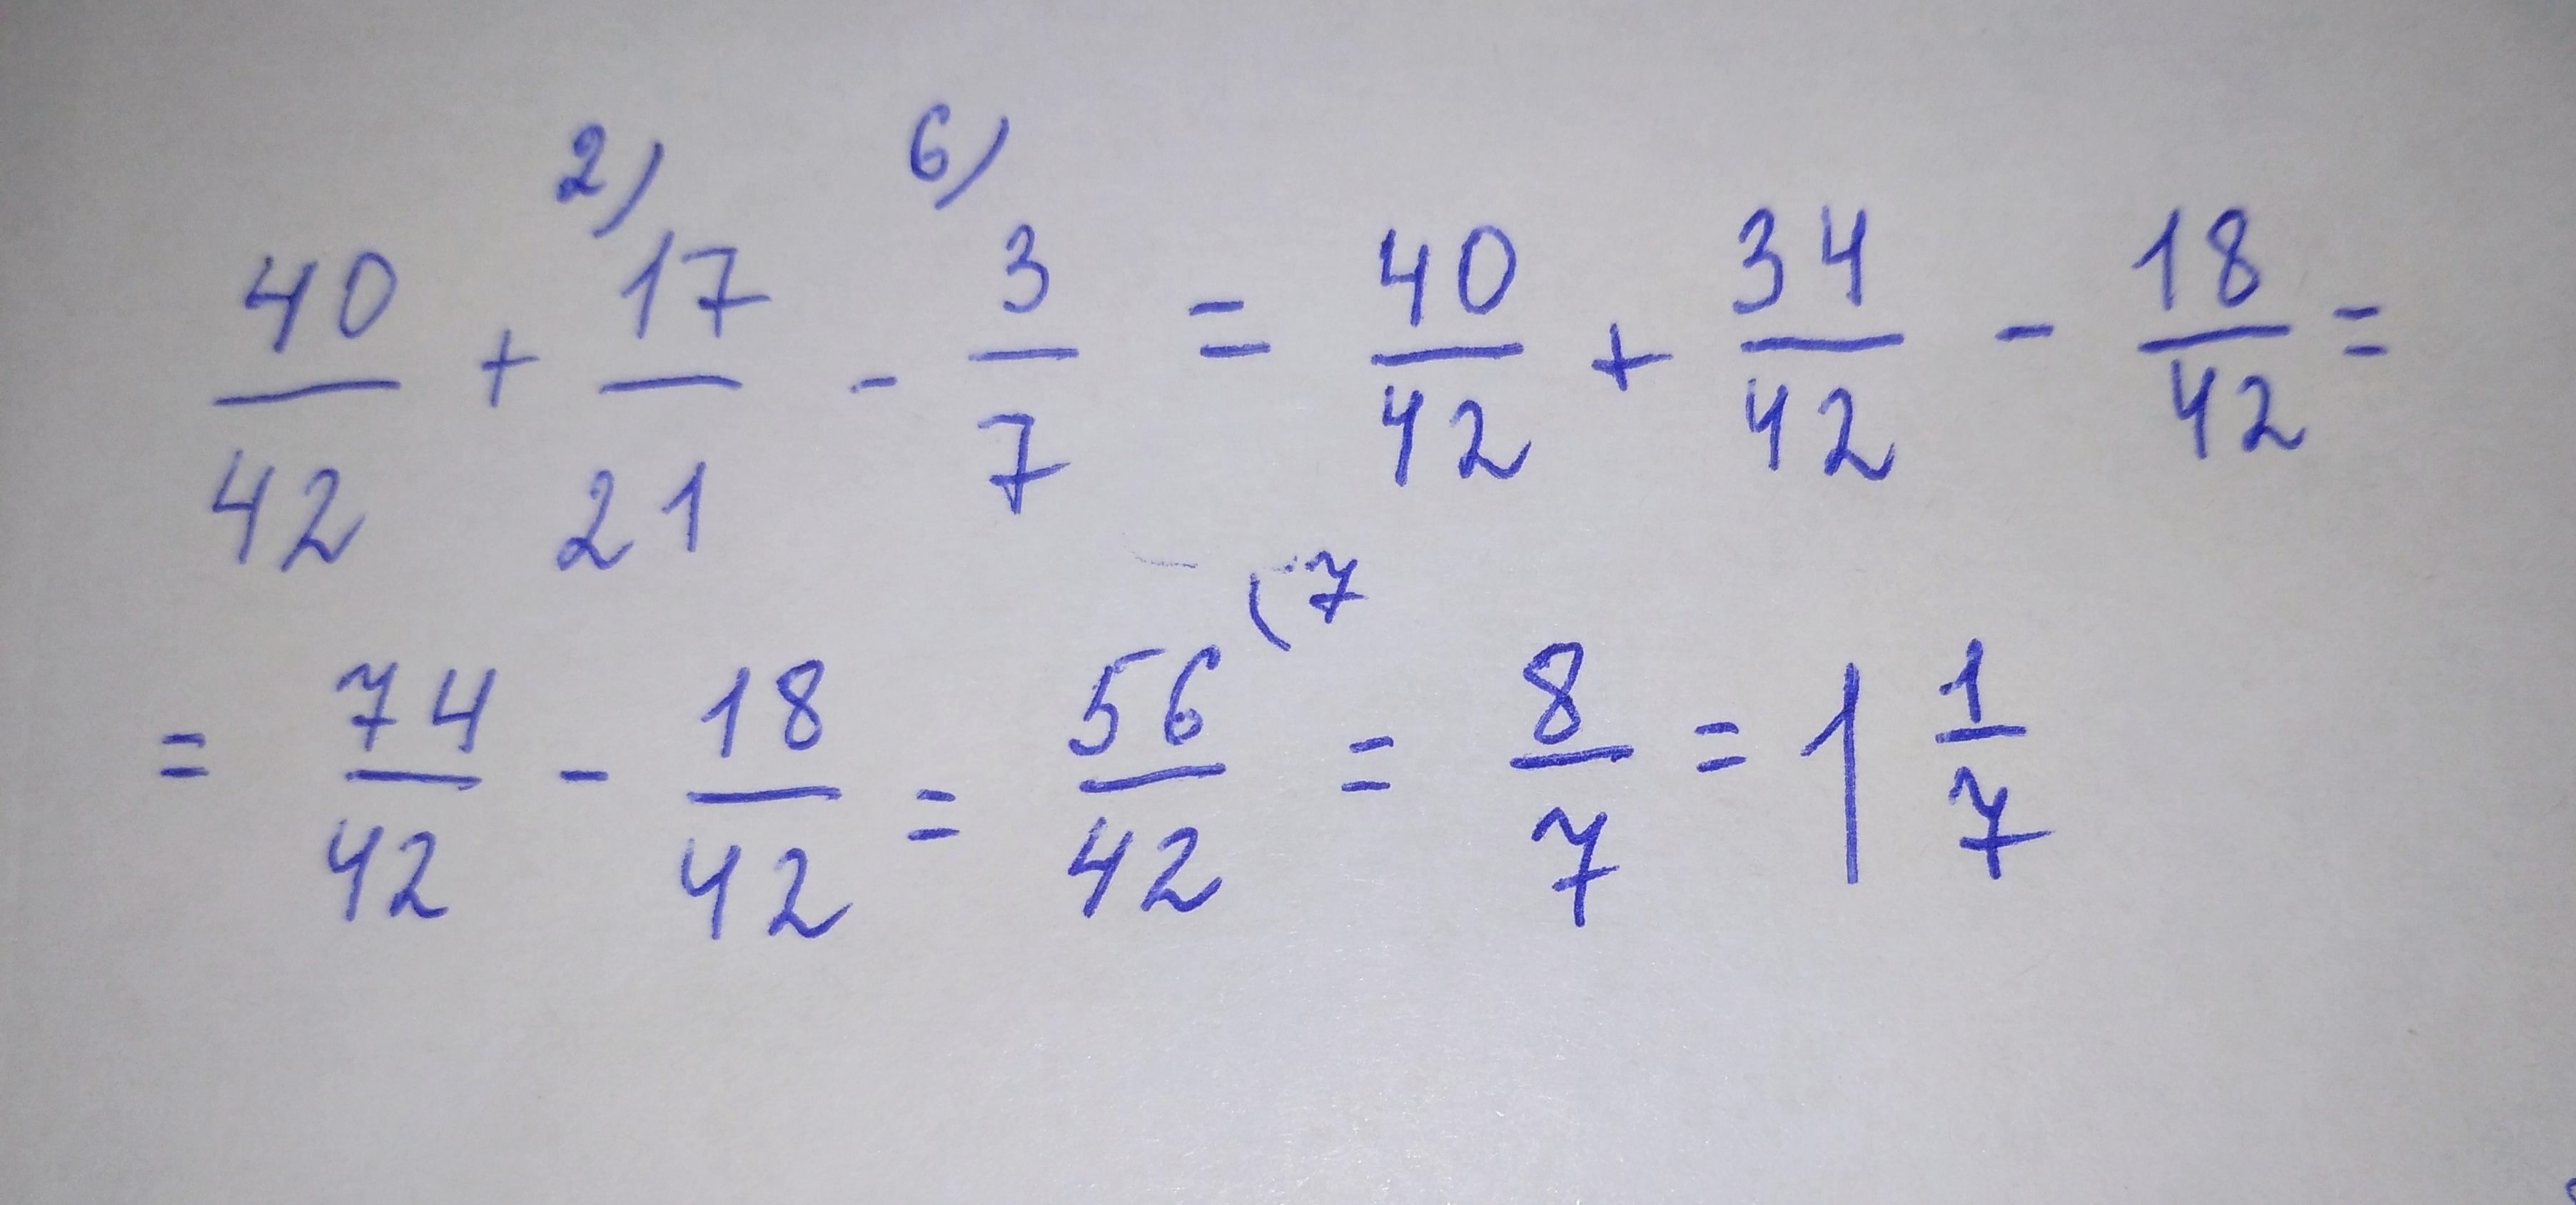 40/42 + 2) 17/21 - 6) 3/7 = 40/42 + 34/42 - 18/42 =
= 74/42 - 18/42 = 56/42 (7 = 8/7 = 1 1/7